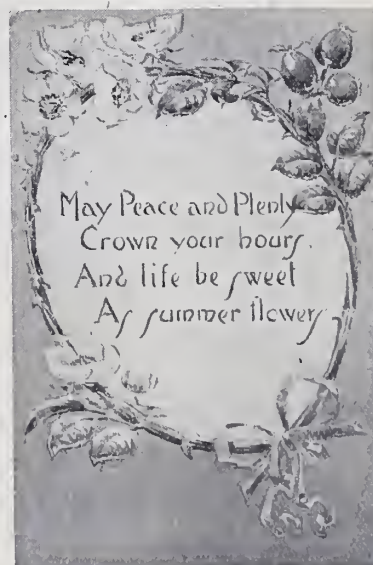 May Peace and Plenty
Crown your hours.
And life be sweet
As summer flowers.